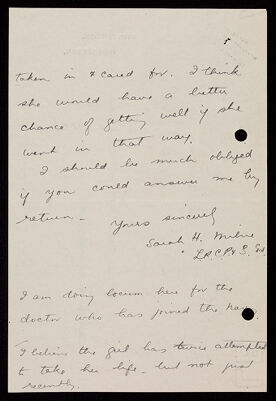 taken in & cared for. I think
she would have a better
chance of getting well if she
went in that way.
I should be much obliged
if you could answer me by
return -
Yours sincerely
Sarah H.
L.R.C.P. & S. Ed.
I am doing locum here for the
doctor who has joined the Navy.
I believe the girl has twice attempted
to take her life - but not just
recently.